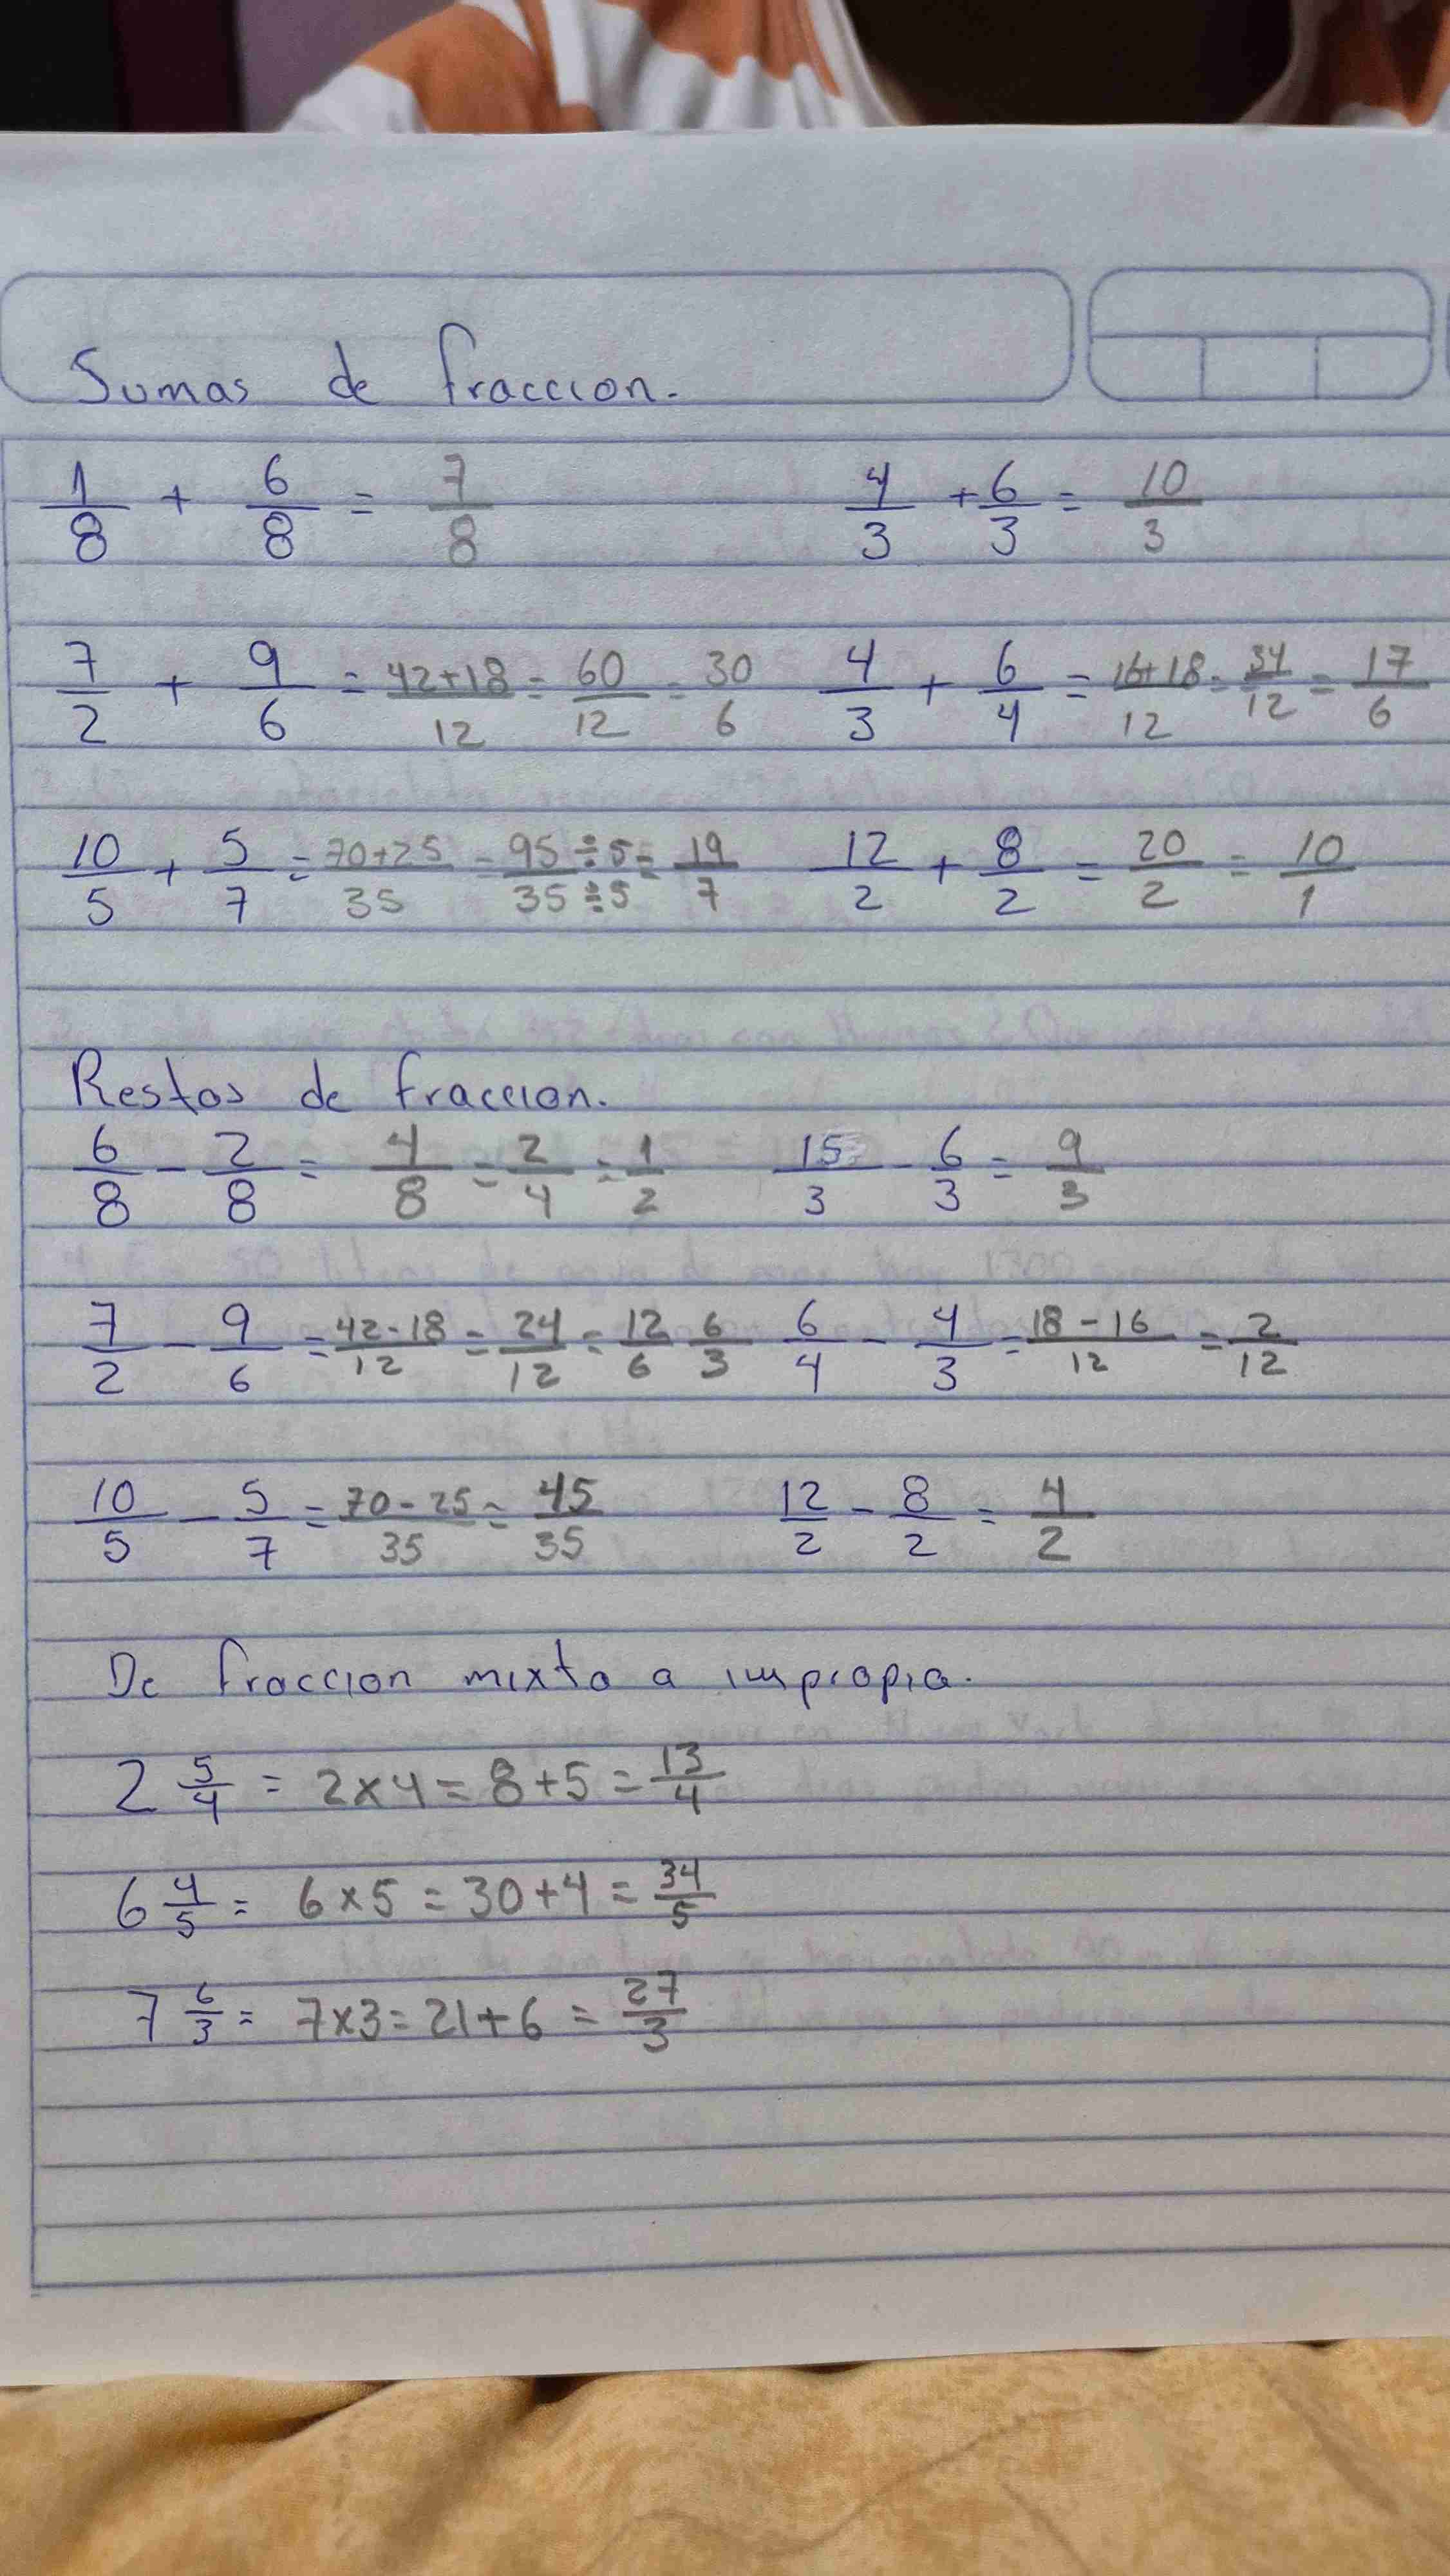 Sumas de fraccion.
1/8 + 6/8 = 7/8 4/3 + 6/3 = 10/3
7/2 + 9/6 = 42+18/12 = 60/12 = 30/6 4/3 + 6/4 = 16+18/12 = 34/12 = 17/6
10/5 + 5/7 = 70+25/35 = 95÷5/35÷5 = 19/7 12/2 + 8/2 = 20/2 = 10/1
Restas de fraccion.
6/8 - 2/8 = 4/8 = 2/4 = 1/2 15/3 - 6/3 = 9/3
7/2 - 9/6 = 42-18/12 = 24/12 = 12/6 6/3 6/4 - 4/3 = 18-16/12 = 2/12
10/5 - 5/7 = 70-25/35 = 45/35 12/2 - 8/2 = 4/2
De fraccion mixta a impropia.
2 5/4 = 2x4 = 8+5 = 13/4
6 4/5 = 6x5 = 30+4 = 34/5
7 6/3 = 7x3 = 21+6 = 27/3